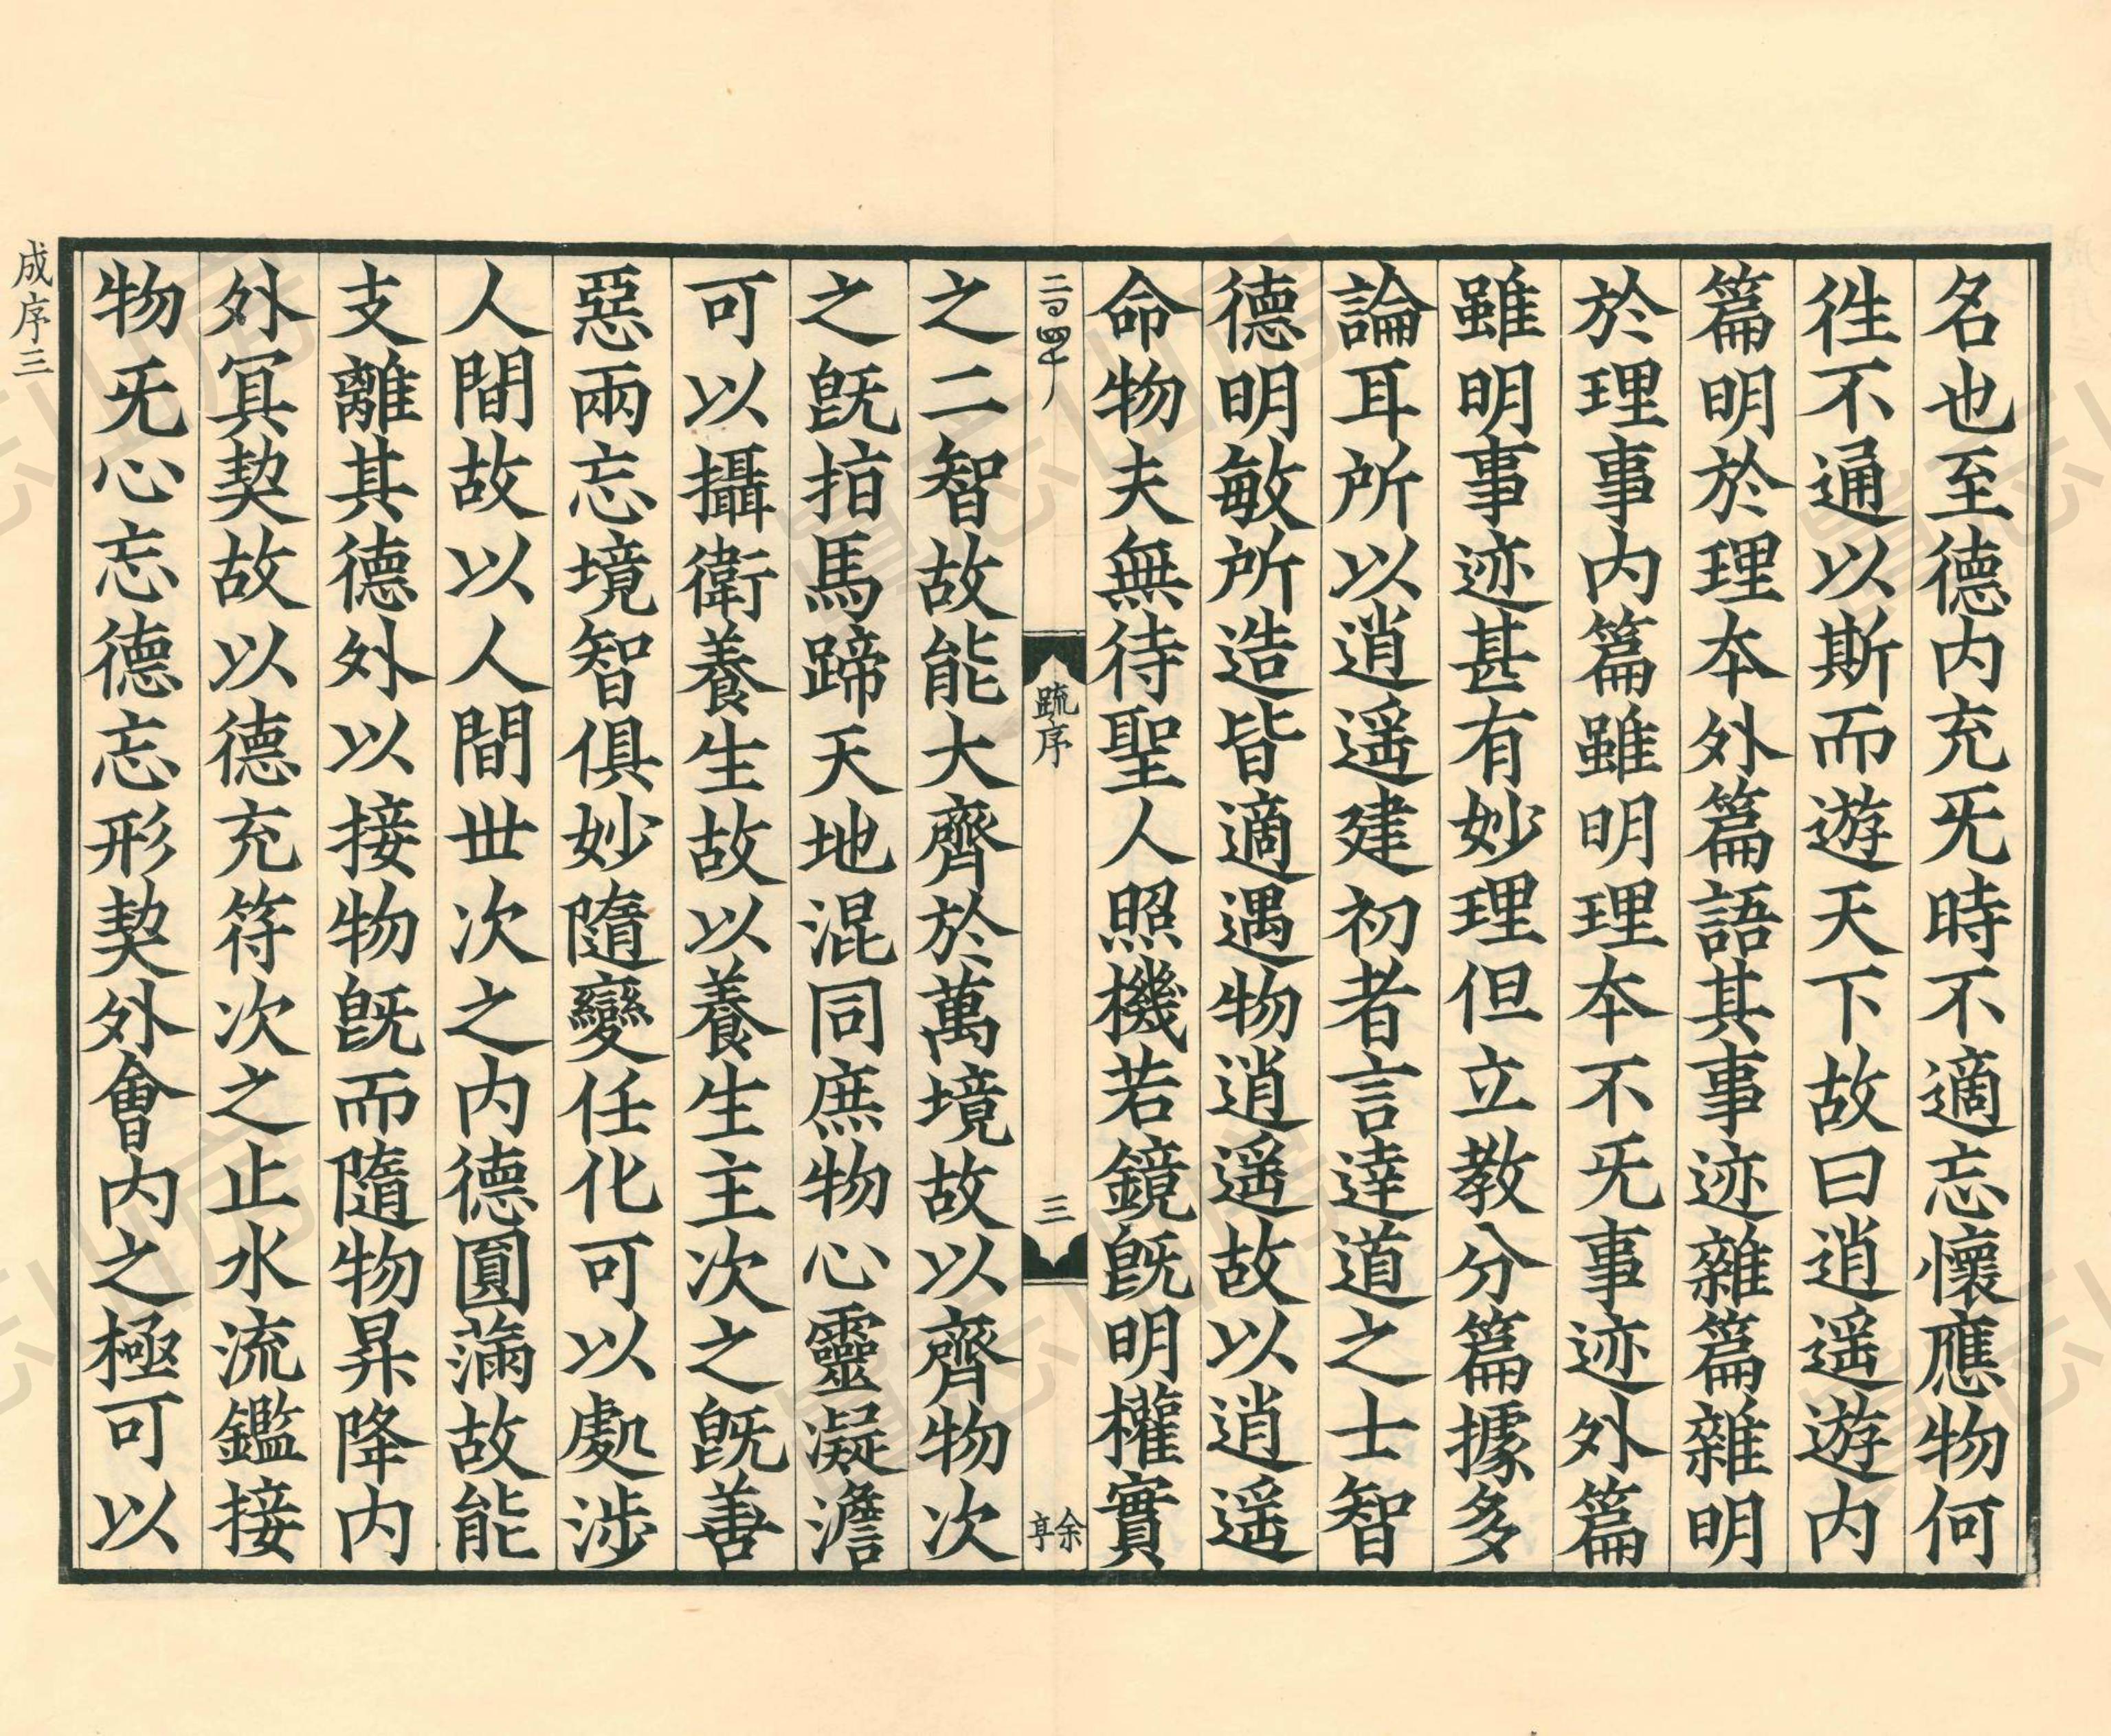 名也至德内充旡時不適忘懷應物何
徃不通以斯而遊天下故曰逍遥遊内
篇明於理夲外篇語其事迹雜篇雜明
於理事内篇雖明理夲不旡事迹外篇
雖明事迹甚有妙理但立教分篇據多
論耳所以逍遥建初者言達道之士智
德明敏所造皆適遇物逍遥故以逍遥
命物夫無待聖人照機若鏡旣明權實
二百四十
疏序
三
余亭
之二智故能大齊於萬境故以齊物次
之旣指馬蹄天地混同庶物心靈凝澹
可以攝衛養生故以養生主次之旣善
惡兩忘境智俱妙隨變任化可以處涉
人間故以人間丗次之内德圓滿故能
支離其德外以接物旣而隨物昇降内
外冥契故以德充符次之止水流鑑接
物旡心忘德忘形契外會内之極可以
成序三